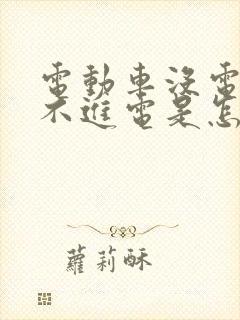 電動車沒電
不進電是怎
蘿莉酥